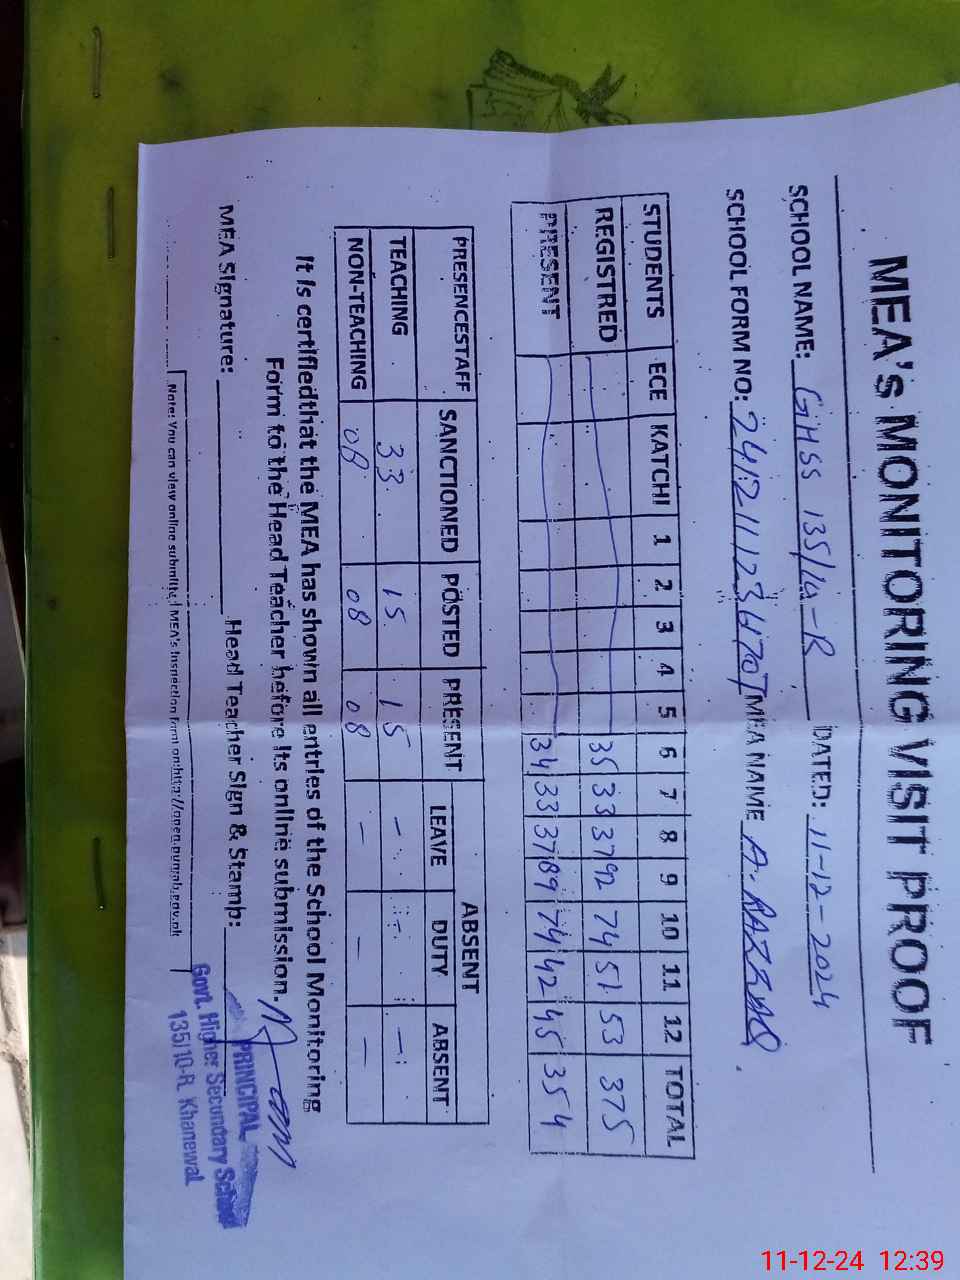 MEA's MONITORING VISIT PROOF
SCHOOL NAME: GHSS 135/10-R DATED: 11-12-2024
SCHOOL FORM NO: MEA NAME A. RAZZAQ
STUDENTS ECE KATCHI 1 2 3 4 5 6 7 8 9 10 11 12 TOTAL
REGISTRED 35 33 37 92 74 51 53 375
PRESENT 34 33 37 89 74 42 45 354
ABSENT
PRESENCESTAFF SANCTIONED POSTED PRESENT LEAVE DUTY ABSENT
TEACHING 33 15 15 - - -
NON-TEACHING 08 08 08 - - -
It is certifiedthat the MEA has shown all entries of the School Monitoring
Form to the Head Teacher before its online submission.
MEA Signature: Head Teacher Sign & Stamp:
PRINCIPAL
Govt. Higher Secundary School
135/10-R. Khanewal
Note: You can view online submitted MEA's Inspection Form on:http://open.punjab.gov.pk
11-12-24 12:39